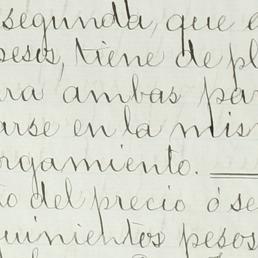 segunda, que e
pesos, tiene de pl
ra ambas par
arse en la mis
orgamiento.
to del precio ó se
quinientos pesos